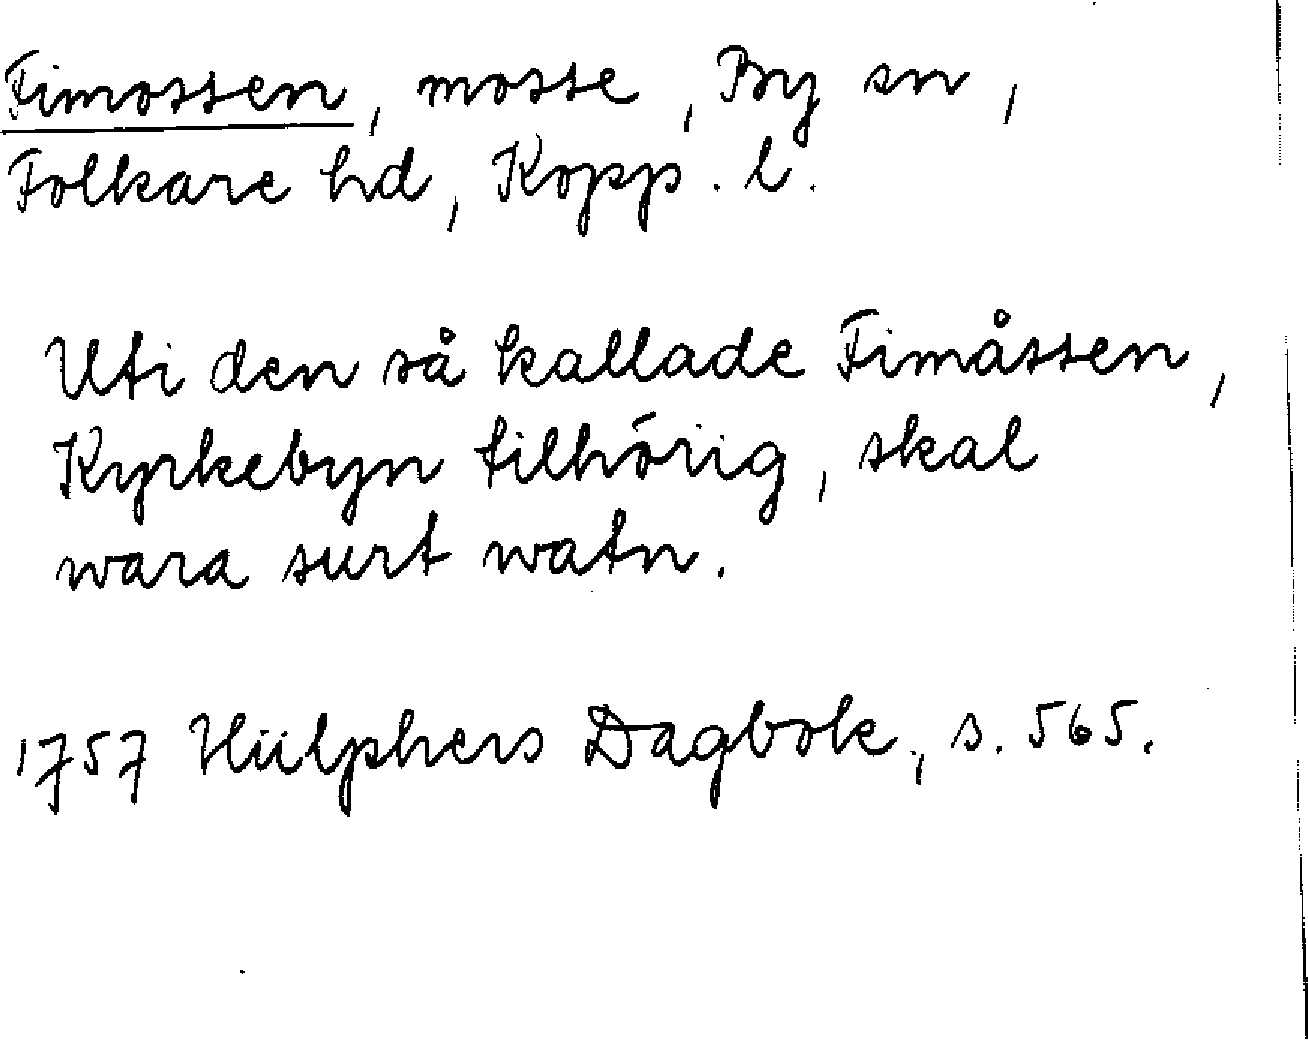 Fimossen, mosse, By sn,
Folkare hd, Kopp. l.
Uti den så kallade Fimåssen,
Kyrkebyn tilhörig, skal
wara surt watn.
1757 Hülphers Dagbok, s. 565.